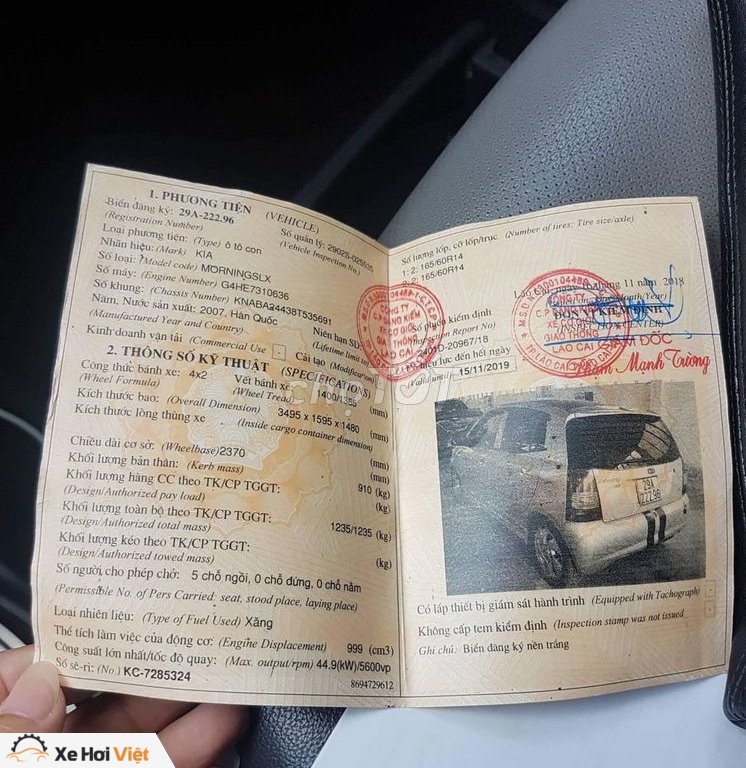 1. PHƯƠNG TIỆN (VEHICLE)
Biển đăng ký: 29A-222.96
(Registration Number)
Số quản lý: 2902S-026535
(Vehicle Inspection No.)
Loại phương tiện: (Type) ô tô con
Nhãn hiệu: (Mark) KIA
Số loại: (Model code) MORNINGSLX
Số máy: (Engine Number) G4HE7310636
Số khung: (Chassis Number) KNABA24438T535691
Năm, Nước sản xuất: 2007, Hàn Quốc
(Manufactured Year and Country)
Niên hạn SD:
(Lifetime limit to)
Kinh doanh vận tải (Commercial Use)
Cải tạo (Modification)
2. THÔNG SỐ KỸ THUẬT (SPECIFICATIONS)
Công thức bánh xe: 4x2
Vết bánh xe: 1400/1385 (mm)
(Wheel Formula) (Wheel Tread)
Kích thước bao: (Overall Dimension) 3495 x 1595 x 1480 (mm)
Kích thước lòng thùng xe (mm)
(Inside cargo container dimension)
Chiều dài cơ sở: (Wheelbase) 2370 (mm)
Khối lượng bản thân: (Kerb mass) 910 (kg)
Khối lượng hàng CC theo TK/CP TGGT: (kg)
(Design/Authorized pay load)
Khối lượng toàn bộ theo TK/CP TGGT: 1235/1235 (kg)
(Design/Authorized total mass)
Khối lượng kéo theo TK/CP TGGT: (kg)
(Design/Authorized towed mass)
Số người cho phép chở: 5 chỗ ngồi, 0 chỗ đứng, 0 chỗ nằm
(Permissible No. of Pers Carried: seat, stood place, laying place)
Loại nhiên liệu: (Type of Fuel Used) Xăng
Thể tích làm việc của động cơ: (Engine Displacement) 999 (cm3)
Công suất lớn nhất/tốc độ quay: (Max. output/rpm) 44.9(kW)/5600vp
Số sê-ri: (No.) KC-7285324
8694729612
Số lượng lốp, cỡ lốp/trục (Number of tires: Tire size/axle)
1: 2: 165/60R14
2: 2: 165/60R14
Lào Cai, ngày 16 tháng 11 năm 2018
ĐƠN VỊ KIỂM ĐỊNH
(INSPECTION CENTER)
Số phiếu kiểm định
(Inspection Report No)
2401D-20967/18
Có hiệu lực đến hết ngày
(Valid until) 15/11/2019
GIÁM ĐỐC
Phạm Mạnh Trường
29A
222.96
Có lắp thiết bị giám sát hành trình (Equipped with Tachograph)
Không cấp tem kiểm định (Inspection stamp was not issued)
Ghi chú: Biển đăng ký nền trắng
chợTỐT
Xe Hơi Việt